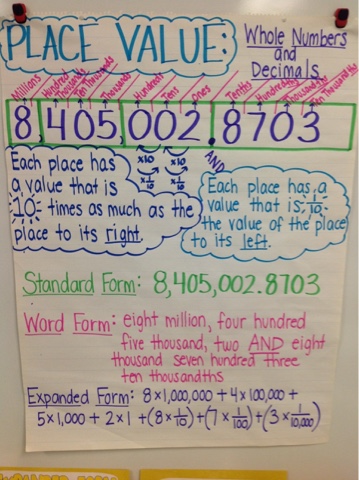 PLACE VALUE:
Whole Numbers
and
Decimals
Millions
Hundred Thousands
Ten Thousands
Thousands
Hundreds
Tens
Ones
Tenths
Hundredths
Thousandths
Ten Thousandths
8,405,002.8703
x10 x10
x 1/10 x 1/10
AND
Each place has
a value that is
10 times as much as the
place to its right.
Each place has a
value that is 1/10
the value of the place
to its left.
Standard Form: 8,405,002.8703
Word Form: eight million, four hundred
five thousand, two AND eight
thousand seven hundred three
ten thousandths
Expanded Form: 8×1,000,000 + 4×100,000 +
5×1,000 + 2×1 +(8×1/10)+(7×1/100)+(3×1/10,000)